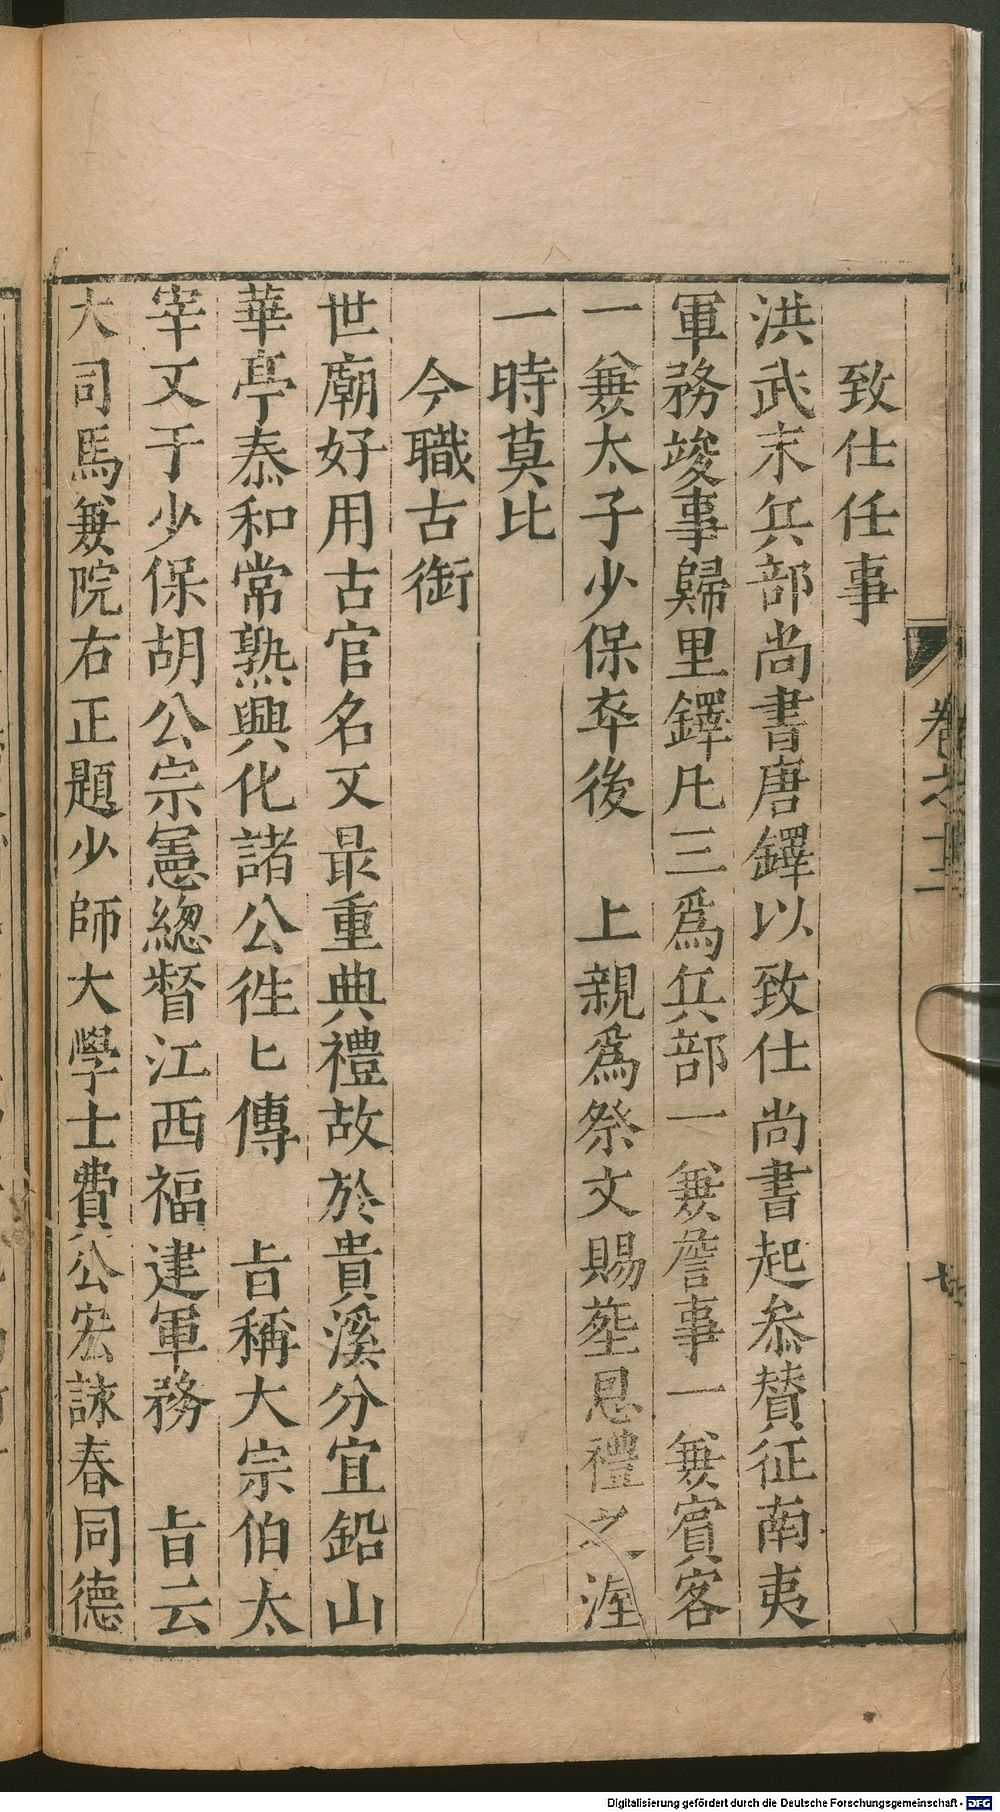 卷之十二
七
致仕任事
洪武末兵部尚書唐鐸以致仕尚書起叅贊征南夷
軍務竣事歸里鐸凡三爲兵部一兼詹事一兼賓客
一兼太子少保卒後　上親爲祭文賜塟恩禮之渥
一時莫比
今職古銜
世廟好用古官名又最重典禮故於貴溪分宜鉛山
華亭泰和常熟興化諸公徃匕傳　㫖稱大宗伯太
宰又于少保胡公宗憲總督江西福建軍務　㫖云
大司馬兼院右正題少師大學士費公宏詠春同德
Digitalisierung gefördert durch die Deutsche Forschungsgemeinschaft - DFG